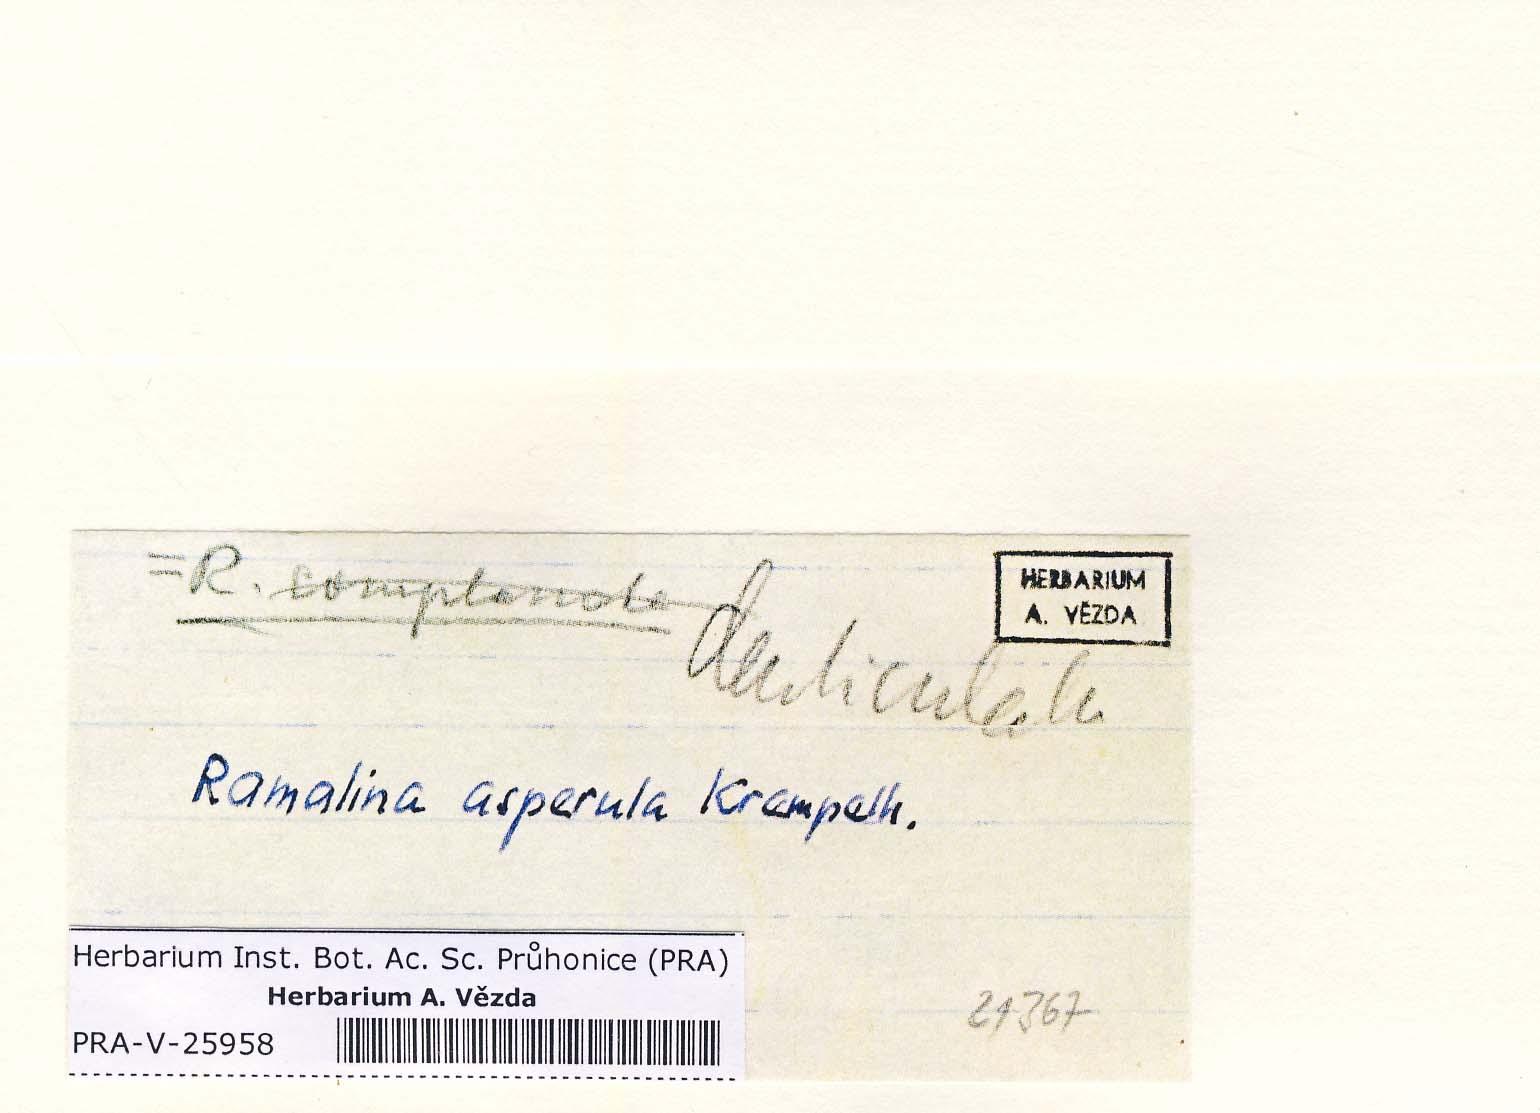 = R. complanata
denticulata
HERBARIUM
A. VĚZDA
Ramalina asperula Krempelh.
Herbarium Inst. Bot. Ac. Sc. Průhonice (PRA)
Herbarium A. Vězda
PRA-V-25958
21367